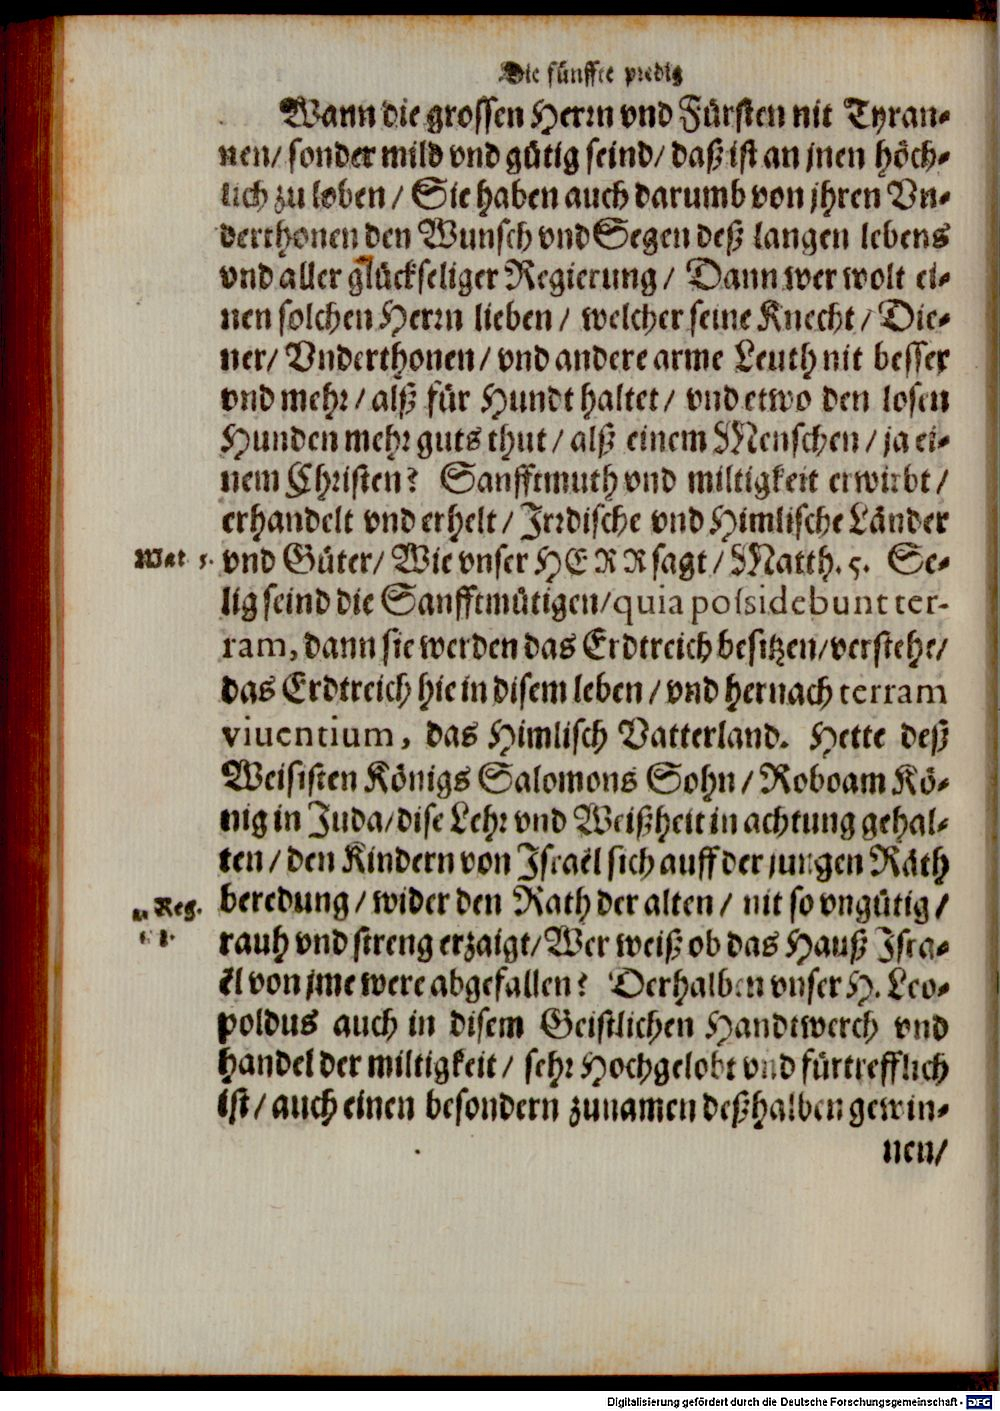 Die fünffte predig
Wann die grossen Herrn vnd Fürsten nit Tyran-
nen/ sonder mild vnd gütig seind/ daß ist an jnen höch-
lich zu loben / Sie haben auch darumb von jhren Vn-
derthonen den Wunsch vnd Segen deß langen lebens
vnd aller glückseliger Regierung / Dann wer wolt ei-
nen solchen Herrn lieben / welcher seine Knecht / Die-
ner/ Vnderthonen / vnd andere arme Leuth nit besser
vnd mehr / alß für Hundt haltet / vnd etwo den losen
Hunden mehr guts thut / alß einem Menschen / ja ei-
nem Christen? Sanfftmuth vnd miltigkeit erwirbt /
erhandelt vnd erhelt / Irrdische vnd Himlische Länder
Mat 5. vnd Güter/ Wie vnser HERR sagt / Matth. 5. Se-
lig seind die Sanfftmütigen/quia possidebunt ter-
ram, dann sie werden das Erdtreich besitzen/verstehe/
das Erdtreich hie in disem leben / vnd hernach terram
viuentium, das Himlisch Vatterland. Hette deß
Weisisten Königs Salomons Sohn / Roboam Kö-
nig in Juda/dise Lehr vnd Weißheit in achtung gehal-
ten / den Kindern von Israël sich auff der jungen Räth
Reg. beredung / wider den Rath der alten / nit so vngütig /
rauh vnd streng erzaigt/Wer weiß ob das Hauß Isra-
ël von jme were abgefallen? Derhalben vnser H. Leo-
poldus auch in disem Geistlichen Handtwerch vnd
handel der miltigkeit / sehr Hochgelobt vnd fürtrefflich
ist / auch einen besondern zunamen deßhalben gewin-
nen/
Digitalisierung gefördert durch die Deutsche Forschungsgemeinschaft - DFG